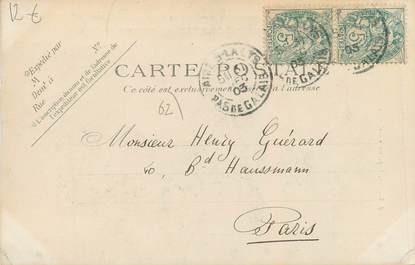 12 €
Expédié par
Nº
M
Demt à
Rue
L'inscription du nom et de l'adresse de
l'expéditeur est facultative
5 5
CARTE POSTALE
Ce côté est exclusivement réservé à l'adresse
PAS DE CALAIS
03
PAS DE CALAIS
62)
Monsieur Henry Guérard
Bd Haussmann
Paris